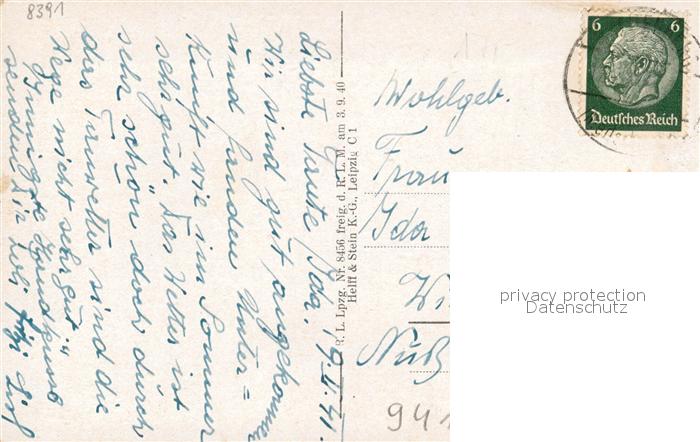 8391
19.II.41.
Liebste Tante Ida!
Wir sind gut angekommen
und fanden Unter=
kunft wie im Sommer
sehr gut. Das Wetter ist
sehr schön doch durch
das Tauwetter sind die
Wege nicht sehr gut.
Innigste Handküsse
senden Dir
R. L. Lpzg. Nr. 8456 freig. d. R. L. M. am 3. 9. 40
Helff & Stein K.-G., Leipzig C 1
6 6
Deutsches Reich
Wohlgeb.
Frau
Ida
Wi
Nuß
941
privacy protection
Datenschutz